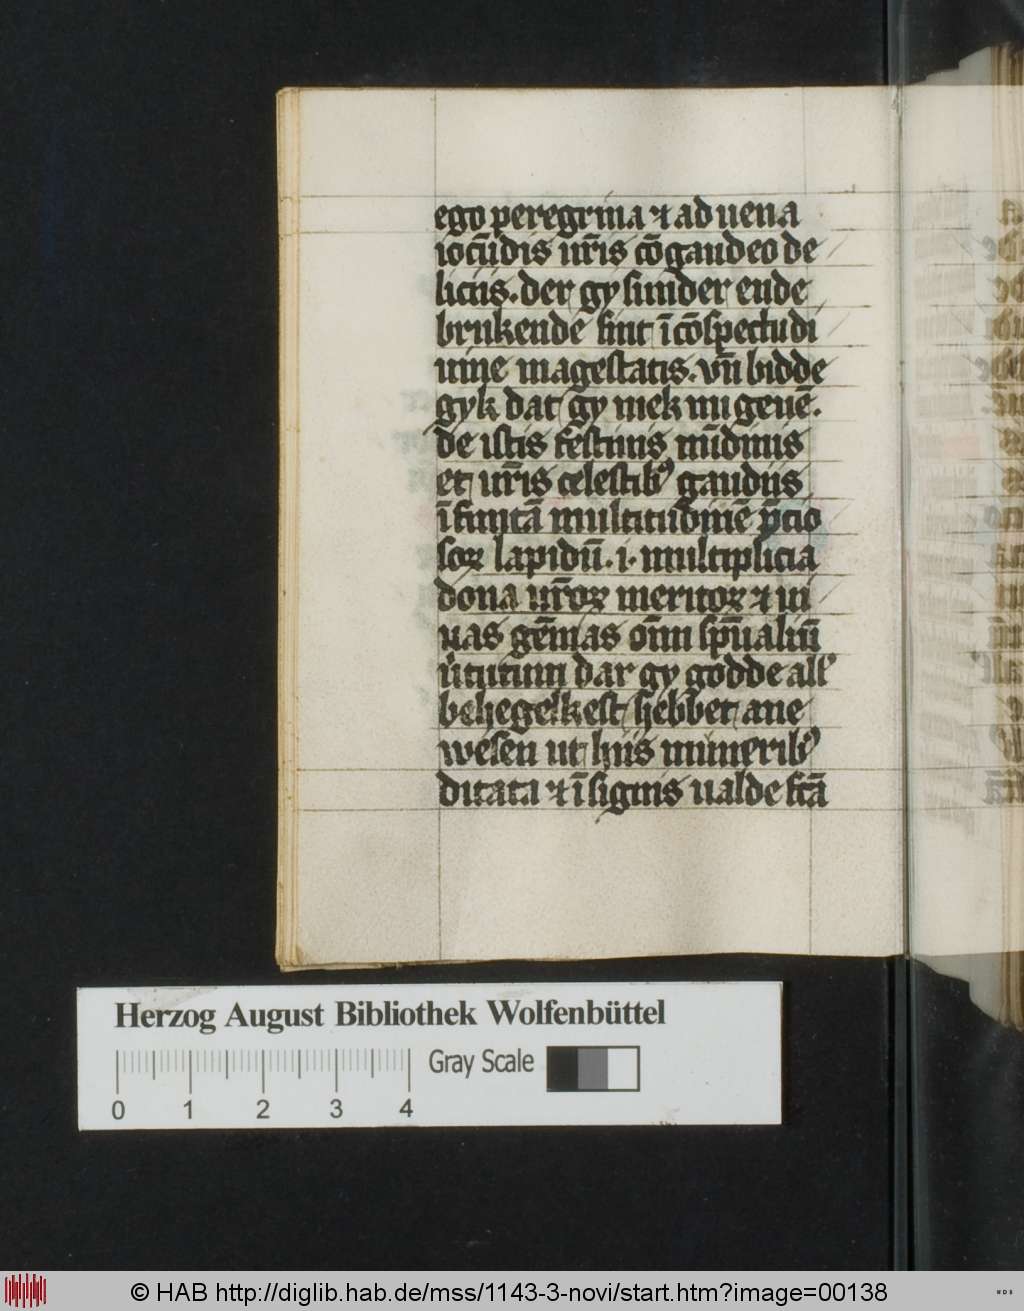 ego peregrina ⁊ aduena
iocūdis ur̄is cōgaudeo de
liciis. der gy sunder ende
brukende sint ī cōspectu di
uine magestatis. vn̄ bidde
gyk dat gy mek nu geuē.
de istis festiuis nūdinus
et ur̄is celestibꝰ gaudiis
īfinitā multitudinē p̄cio
soꝝ lapidū. i. multiplicia
dona ur̄oꝝ meritoꝝ ⁊ ui
uas gēmas om̄i sp̄ualiū
u̓tutum dar gy godde all̓
behegelkest hebbet ane
wesen ut hiis muneribꝰ
ditata ⁊ īsignis ualde fc̄ā
Herzog August Bibliothek Wolfenbüttel
Gray Scale
0 1 2 3 4
© HAB http://diglib.hab.de/mss/1143-3-novi/start.htm?image=00138